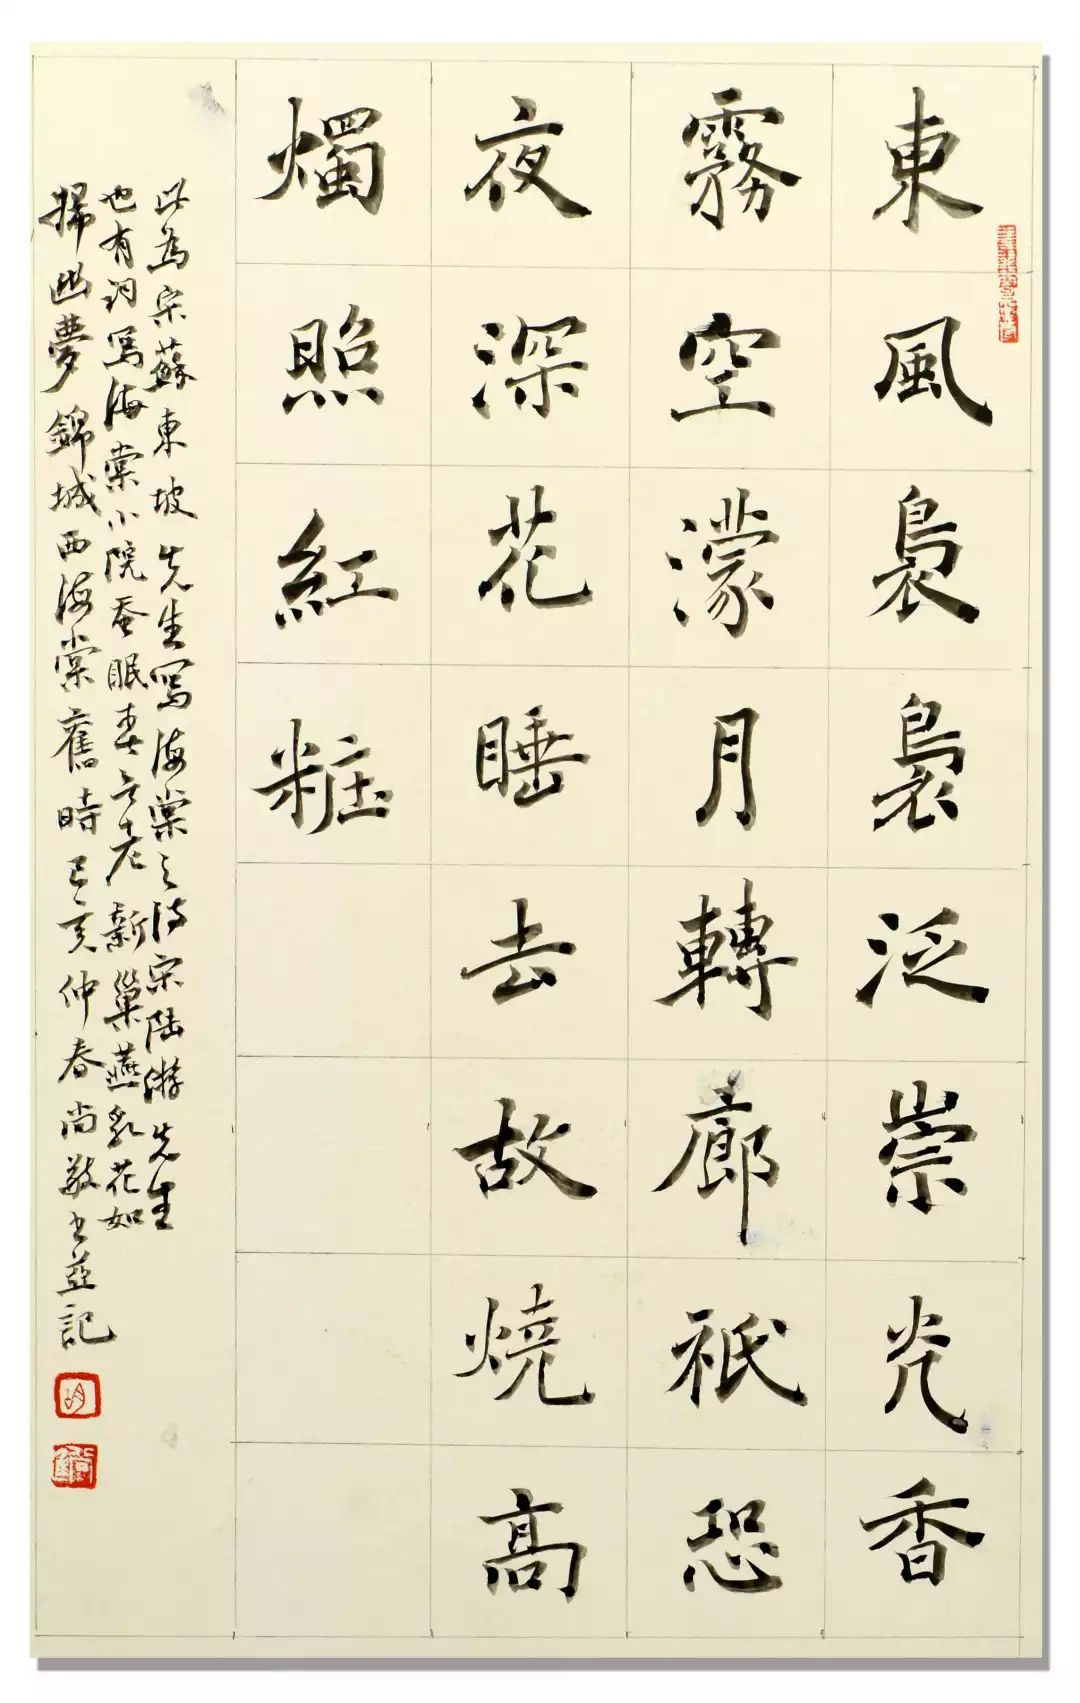 東風裊裊泛崇光香
霧空濛月轉廊祇恐
夜深花睡去故燒高
燭照紅粧
此為宋蘇東坡先生寫海棠之詩宋陆游先生
也有词寫海棠小院蚕眠春欲老新巢燕乳花如
掃幽夢錦城西海棠舊時己亥仲春尚敬书並記